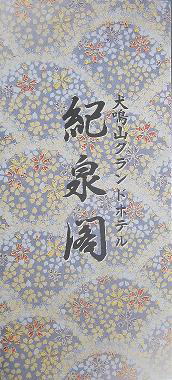 犬鳴山グランドホテル
紀泉閣